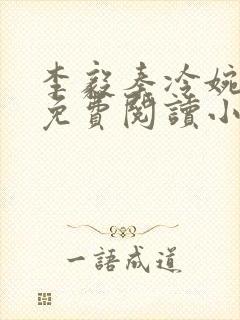 李毅秦冷婉
免費閱讀小
一語成道